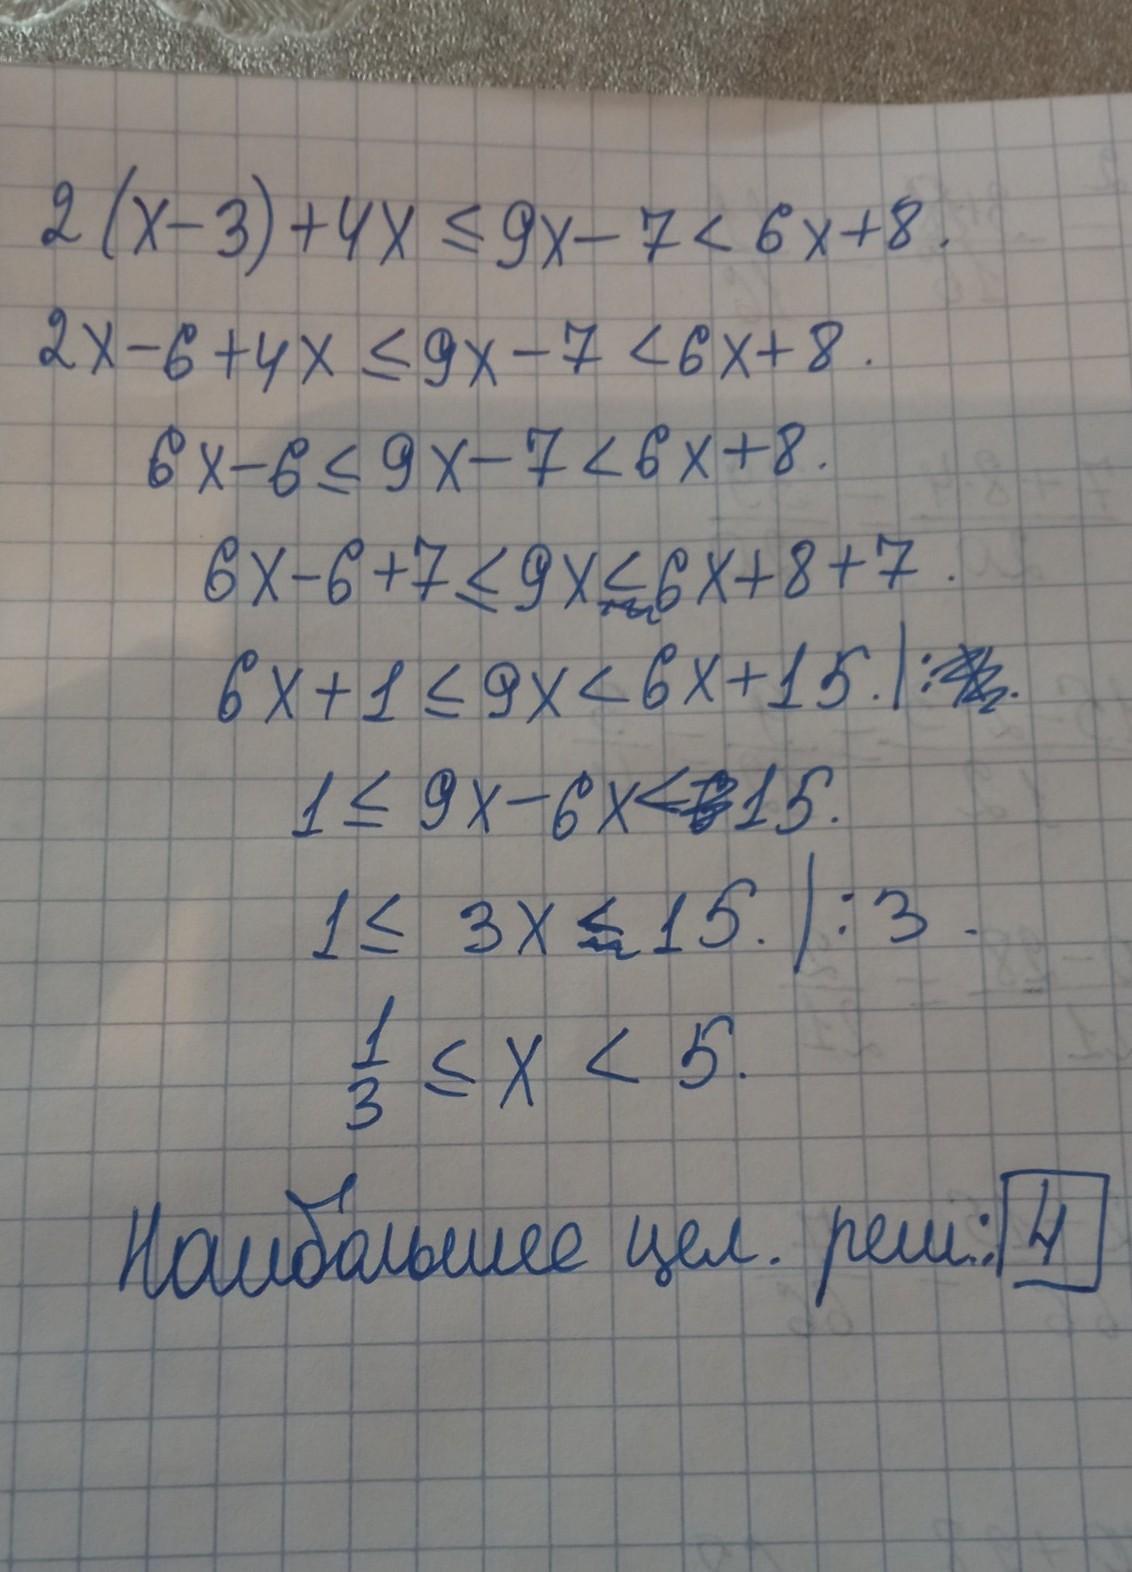 2(x-3)+4x ≤ 9x-7 < 6x+8.
2x-6+4x ≤ 9x-7 < 6x+8.
6x-6 ≤ 9x-7 < 6x+8.
6x-6+7 ≤ 9x < 6x+8+7.
6x+1 ≤ 9x < 6x+15. | :
1 ≤ 9x-6x < 15.
1 ≤ 3x < 15. | :3.
1/3 ≤ x < 5.
Наибольшее цел. реш.: 4